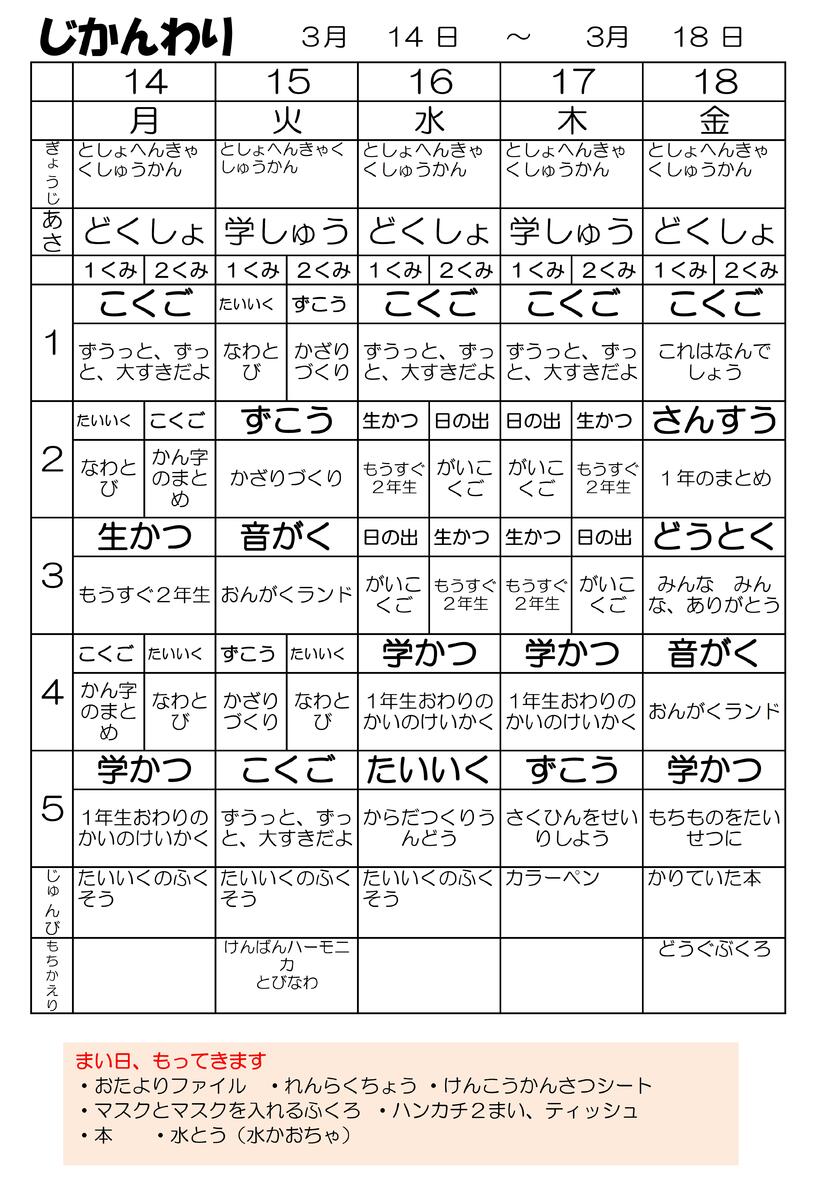 じかんわり　3月　14 日　～　3月　18 日
14　15　16　17　18
月　火　水　木　金
ぎょうじ
としょへんきゃ
くしゅうかん
としょへんきゃく
しゅうかん
としょへんきゃ
くしゅうかん
としょへんきゃ
くしゅうかん
としょへんきゃ
くしゅうかん
あさ
どくしょ　学しゅう　どくしょ　学しゅう　どくしょ
1くみ　2くみ　1くみ　2くみ　1くみ　2くみ　1くみ　2くみ　1くみ　2くみ
1
こくご　たいいく　ずこう　こくご　こくご　こくご
ずうっと、ずっ
と、大すきだよ
なわと
び
かざり
づくり
ずうっと、ずっ
と、大すきだよ
ずうっと、ずっ
と、大すきだよ
これはなんで
しょう
2
たいいく　こくご　ずこう　生かつ　日の出　日の出　生かつ　さんすう
なわと
び
かん字
のまと
め
かざりづくり
もうすぐ
2年生
がいこ
くご
がいこ
くご
もうすぐ
2年生
1年のまとめ
3
生かつ　音がく　日の出　生かつ　生かつ　日の出　どうとく
もうすぐ2年生
おんがくランド
がいこ
くご
もうすぐ
2年生
もうすぐ
2年生
がいこ
くご
みんな　みん
な、ありがとう
4
こくご　たいいく　ずこう　たいいく　学かつ　学かつ　音がく
かん字
のまと
め
なわと
び
かざり
づくり
なわと
び
1年生おわりの
かいのけいかく
1年生おわりの
かいのけいかく
おんがくランド
5
学かつ　こくご　たいいく　ずこう　学かつ
1年生おわりの
かいのけいかく
ずうっと、ずっ
と、大すきだよ
からだつくりう
んどう
さくひんをせい
りしよう
もちものをたい
せつに
じゅんび
たいいくのふく
そう
たいいくのふく
そう
たいいくのふく
そう
カラーペン
かりていた本
もちかえり
けんばんハーモニ
カ
とびなわ
どうぐぶくろ
まい日、もってきます
・おたよりファイル　・れんらくちょう ・けんこうかんさつシート
・マスクとマスクを入れるふくろ　・ハンカチ2まい、ティッシュ
・本　　・水とう（水かおちゃ）